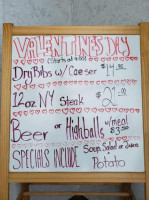 VALENTINES DAY
(Starts at 4:00)
Dry Ribs w/ Caeser $14.95
12oz NY Steak $21.00
Beer or Highballs w/meal $3.50
SPECIALS INCLUDE Soup, Salad or
Potato